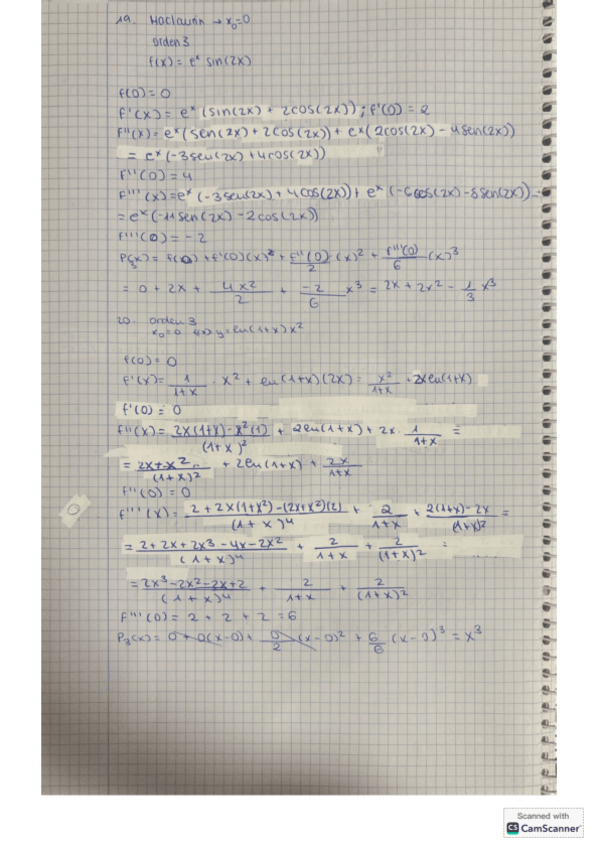 19. Maclaurin → x₀=0
orden 3
f(x) = eˣ sin(2x)
f(0) = 0
f'(x) = eˣ (sin(2x) + 2cos(2x)) ; f'(0) = 2
f''(x) = eˣ (sen(2x) + 2cos(2x)) + eˣ (2cos(2x) - 4sen(2x))
= eˣ (-3sen(2x) + 4cos(2x))
f''(0) = 4
f'''(x) = eˣ (-3sen(2x) + 4cos(2x)) + eˣ (-6cos(2x) - 8sen(2x))
= eˣ (-11sen(2x) - 2cos(2x))
f'''(0) = -2
P₃(x) = f(0) + f'(0)(x)² + f''(0)/2 (x)² + f'''(0)/6 (x)³
= 0 + 2x + 4x²/2 + -2/6 x³ = 2x + 2x² - 1/3 x³
20. orden 3
x₀=0 y = ln(1+x) x²
f(0) = 0
f'(x) = 1/1+x · x² + ln(1+x)(2x) = x²/1+x + 2xln(1+x)
f'(0) = 0
f''(x) = 2x(1+x) - x²(1)/(1+x)² + 2ln(1+x) + 2x · 1/1+x =
= 2x+x²/(1+x)² + 2ln(1+x) + 2x/1+x
f''(0) = 0
f'''(x) = 2+2x(1+x²) - (2x+x²)(2)/(1+x)⁴ + 2/1+x + 2(1+x)-2x/(1+x)² =
= 2+2x+2x³-4x-2x²/(1+x)⁴ + 2/1+x + 2/(1+x)² =
= 2x³-2x²-2x+2/(1+x)⁴ + 2/1+x + 2/(1+x)²
f'''(0) = 2+2+2 = 6
P₃(x) = 0 + 0(x-0) + 0/2 (x-0)² + 6/6 (x-0)³ = x³
Scanned with
CS CamScanner